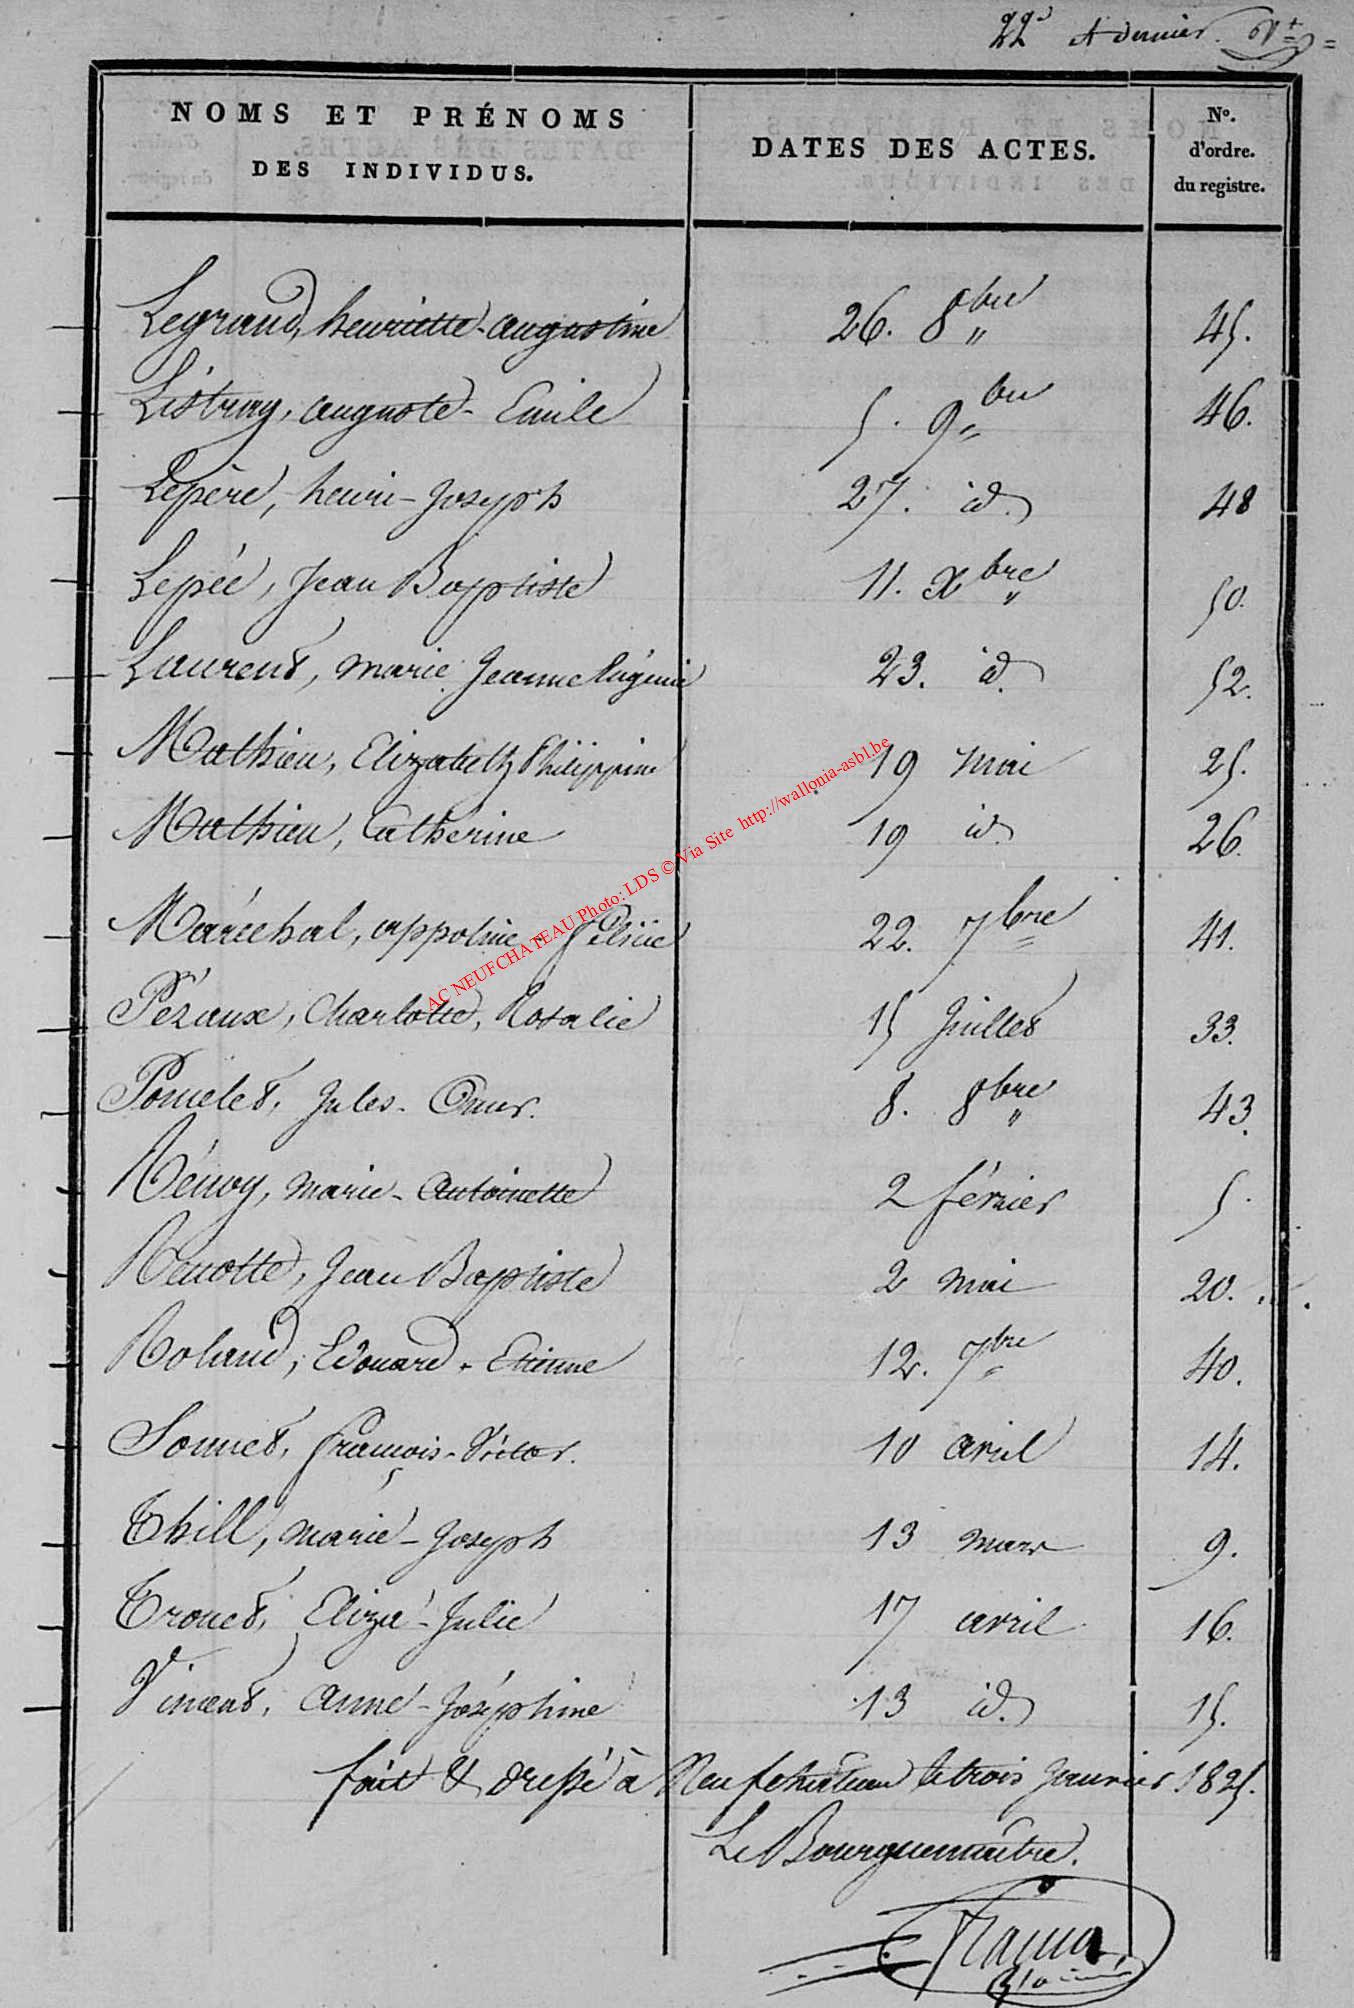 22e et dernier
NOMS ET PRÉNOMS
DES INDIVIDUS.
DATES DES ACTES.
No.
d'ordre.
du registre.
Legrand, henriette-augustine 26. 8bre 45.
Listray, auguste-Emile 5. 9bre 46.
Lepère, henri-Joseph 27. id. 48
Lepée, Jean Baptiste 11. Xbre 50.
Laurent, marie Jeanne Eugénie 23. id. 52.
Mathieu, Elizabeth Philippine 19 mai 25.
Mathieu, Catherine 19 id. 26.
Maréchal, appoline-Félicie 22. 7bre 41.
Pézaux, Charlotte, Rosalie 15 Juillet 33.
Poncelet, Jules-Omer. 8. 8bre 43.
Rénoy, marie-Antoinette 2 février 5.
Renotte, Jean Baptiste 2 mai 20.
Roland, Edouard-Etienne 12. 7bre 40.
Sonnet, François-Victor. 10 avril 14.
Thill, marie-Joseph 13 mars 9.
Tronet, Eliza-Julie 17 avril 16.
Vincent, anne-Joséphine 13 id. 15.
fait & dressé à Neufchateau le trois Janvier 1825.
Le Bourguemaître.
AC NEUFCHATEAU Photo: LDS © Via Site http://wallonia-asbl.be